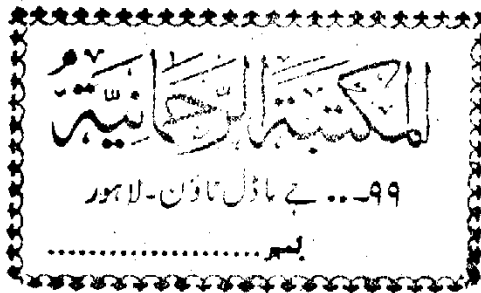 المکتبۃ الرحمانیۃ
۹۹۔.. جے ماڈل ٹاؤن۔ لاہور
نمبر......................